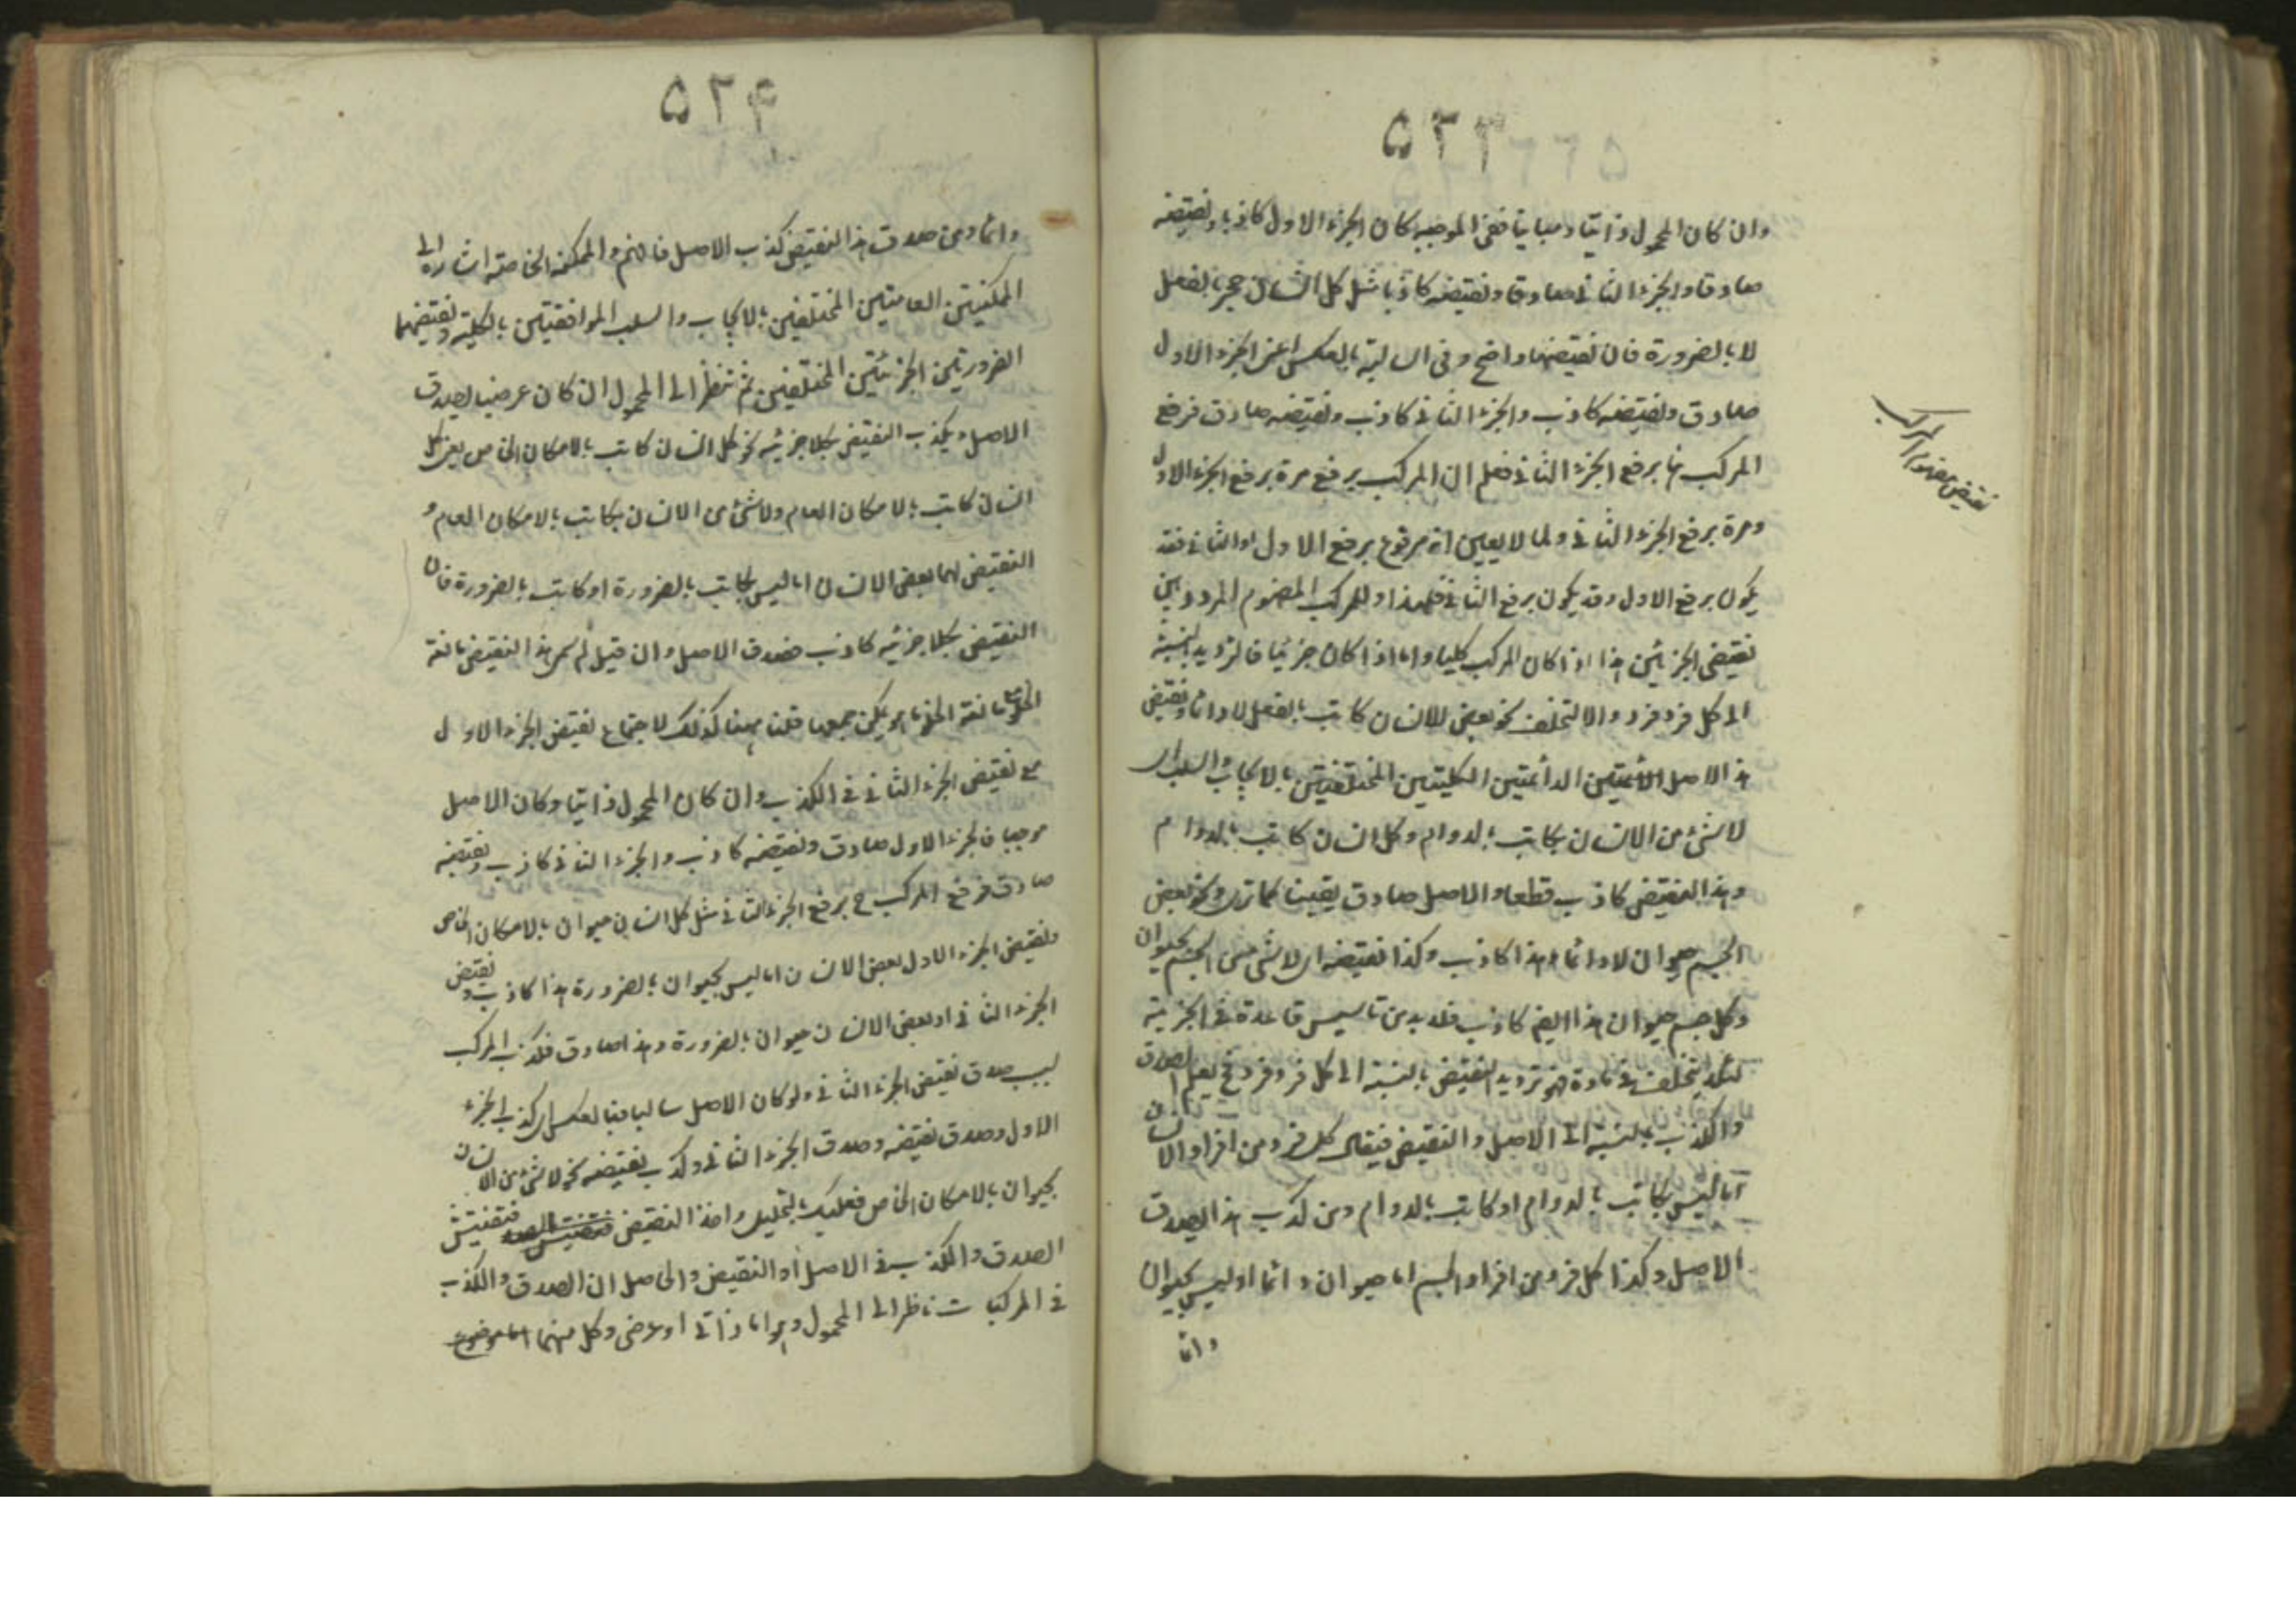 ۵۲۳
وان كان المحمول ذاتيا ومباينا ففى الموجبة كان الجزء الاول كاذبا ونقيضه
صادقا والجزء الثانى صادقا ونقيضه كاذبا مثل كل انسان حجر بالفعل
لا بالضرورة فان نقيضهما واضح وفى السالبة بالعكس اعنى الجزء الاول
صادق ونقيضه كاذب والجزء الثانى كاذب ونقيضه صادق فرفع
المركب هنا برفع الجزء الثانى فعلم ان المركب يرفع مرة برفع الجزء الاول
ومرة برفع الجزء الثانى ولما لا يعين انه مرفوع برفع الاول او الثانى فقد
يكون برفع الاول وقد يكون برفع الثانى فلهذا وللمركب المفهوم المردد بين
نقيضى الجزئين هذا اذا كان المركب كليا واما اذا كان جزئيا فالترديد بالنسبة
الى كل فرد فرد والا لتخلف نحو بعض الانسان كاتب بالفعل لا دائما ونقيض
هذا الاصل الدائمتين الكليتين المختلفتين بالايجاب والسلب اى
لا شئ من الانسان بكاتب بالدوام وكل انسان كاتب بالدوام
وهذا النقيض كاذب قطعا والاصل صادق يقينا كما ترى ونحو بعض
الجسم حيوان لا دائما هذا كاذب وكذا نقيضه اى لا شئ من الجسم بحيوان
وكل جسم حيوان هذا ايضا كاذب فلا بد من تاسيس قاعدة فى الجزئية
لئلا يتخلف فى مادة فهو ترديد النقيض بالنسبة الى كل فرد فرد فح يعلم الصدق
والكذب بالنسبة الى الاصل والنقيض فيقال كل فرد من افراد الانسان
اما ليس بكاتب بالدوام او كاتب بالدوام ومن كذب هذا يصدق
الاصل وكذا كل فرد من افراد الجسم اما حيوان دائما او ليس بحيوان
دائما
نقيض المركب
۵۲۴
دائما ومن صدق هذا النقيض كذب الاصل فافهم والممكنة الخاصة اشارة الى
الممكنتين العامتين المختلفين بالايجاب والسلب الموافقتين بالكلية ونقيضهما
الضروريتين الجزئيتين المختلفين ثم تنظر الى المحمول ان كان عرضيا يصدق
الاصل ويكذب النقيض بكلا جزئيه نحو كل انسان كاتب بالامكان الخاص يعنى كل
انسان كاتب بالامكان العام ولا شئ من الانسان بكاتب بالامكان العام و
النقيض لهما بعض الانسان اما ليس بكاتب بالضرورة او كاتب بالضرورة فان
النقيض بكلا جزئيه كاذب فصدق الاصل وان قيل لم سمى هذا النقيض مانعة
الخلو مع مانعة الخلو ما يمكن جمعها قلنا ههنا كذلك لاجتماع نقيض الجزء الاول
مع نقيض الجزء الثانى فى الكذب وان كان المحمول ذاتيا وكان الاصل
موجبا فالجزء الاول صادق ونقيضه كاذب والجزء الثانى كاذب ونقيضه
صادق فرفع المركب ح برفع الجزء الثانى مثل كل انسان حيوان بالامكان الخاص
ونقيض الجزء الاول بعض الانسان اما ليس بحيوان بالضرورة هذا كاذب ونقيض
الجزء الثانى او بعض الانسان حيوان بالضرورة وهذا صادق فكذب المركب
لسبب صدق نقيض الجزء الثانى ولو كان الاصل سالبا فبالعكس اى كذب الجزء
الاول وصدق نقيضه وصدق الجزء الثانى وكذب نقيضه نحو لا شئ من الانسان
بحيوان بالامكان الخاص فعليك بالتحليل واخذ النقيض فتفتيش
الصدق والكذب فى الاصل او النقيض والحاصل ان الصدق والكذب
فى المركبات ناظر الى المحمول وهو اما ذاتى او عرضى وكل منهما اما موضوع